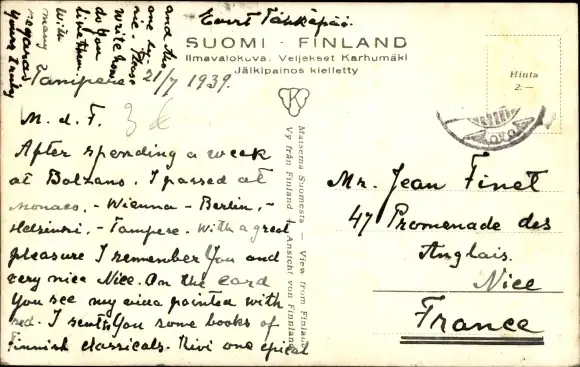 Eevert Tähkäpää.
SUOMI - FINLAND
Ilmavalokuva. Veljekset Karhumäki
Jälkipainos kielletty
Hinta
2:—
Tampere 21/7 1939.
M. d. F.
After spending a week
at Bolzano, I passed at
Monaco, - Vienna - Berlin, -
Helsinski, - Tampere. With a great
pleasure I remember You and
very nice Nice. On the card
You see my pointed with
red. I sent You some books of
Finnish classicals. one epical
and the
one
Please
write how
do You
like them.
With
many
regards
Yours truly
Maisema Suomesta — View from Finland
Vy från Finland — Ansicht von Finnland
Mr. Jean Finet
47 Promenade des
Anglais.
Nice
France